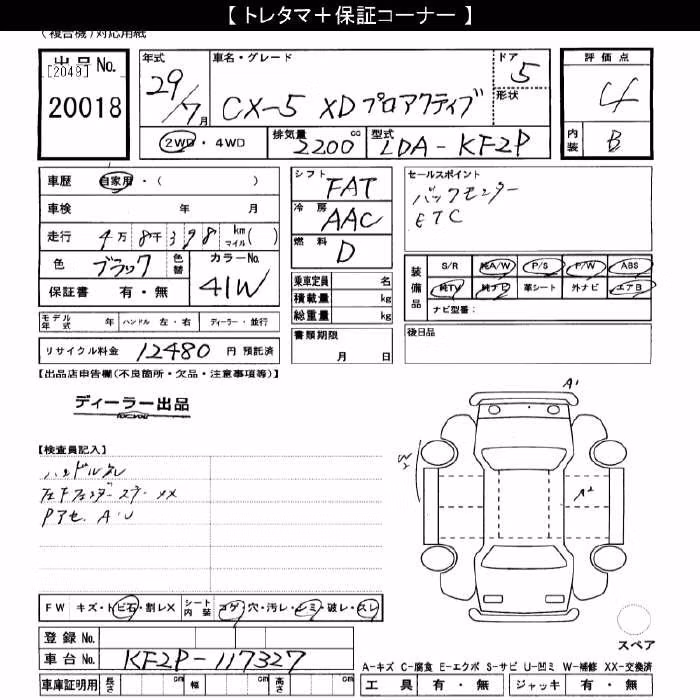 【 トレタマ＋保証コーナー 】
(複合機)対応用紙
出品 No.
[2049]
20018
年式
29/7月
車名・グレード
CX-5 XDプロアクティブ
ドア
5
形状
評価点
4
内装
B
2WD・4WD
排気量
2200 cc
型式
LDA-KF2P
車歴 自家用・( )
車検 年 月
走行 4万8千398 km マイル( )
色 ブラック 色替 カラーNo.
41W
保証書 有・無
モデル年式 年 ハンドル 左・右 ディーラー・並行
リサイクル料金 12480 円 預託済
シフト FAT
冷房 AAC
燃料 D
乗車定員 名
積載量 kg
総重量 kg
書類期限
月 日
セールスポイント
バックモニター
ETC
装備品
S/R 純A/W P/S P/W ABS
純TV 純ナビ 革シート 外ナビ エアB
ナビ型番:
後日品
【出品店申告欄(不良箇所・欠品・注意事項等)】
ディーラー出品
for you
【検査員記入】
ハンドルスレ
XX
Pアセ A・U
A1
W2
A2
FW キズ・トビ石・割レX シート内装 コゲ・穴・汚レ・シミ・破レ・スレ
登録 No.
車台 No. KF2P-117327
車庫証明用 長さ cm 幅 cm 高さ cm
スペア
A-キズ C-腐食 E-エクボ S-サビ U-凹ミ W-補修 XX-交換済
工具 有・無 ジャッキ 有・無